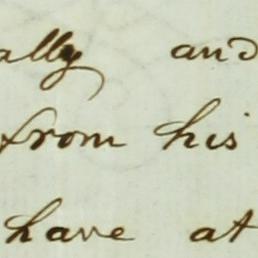 ally and
from his
have at